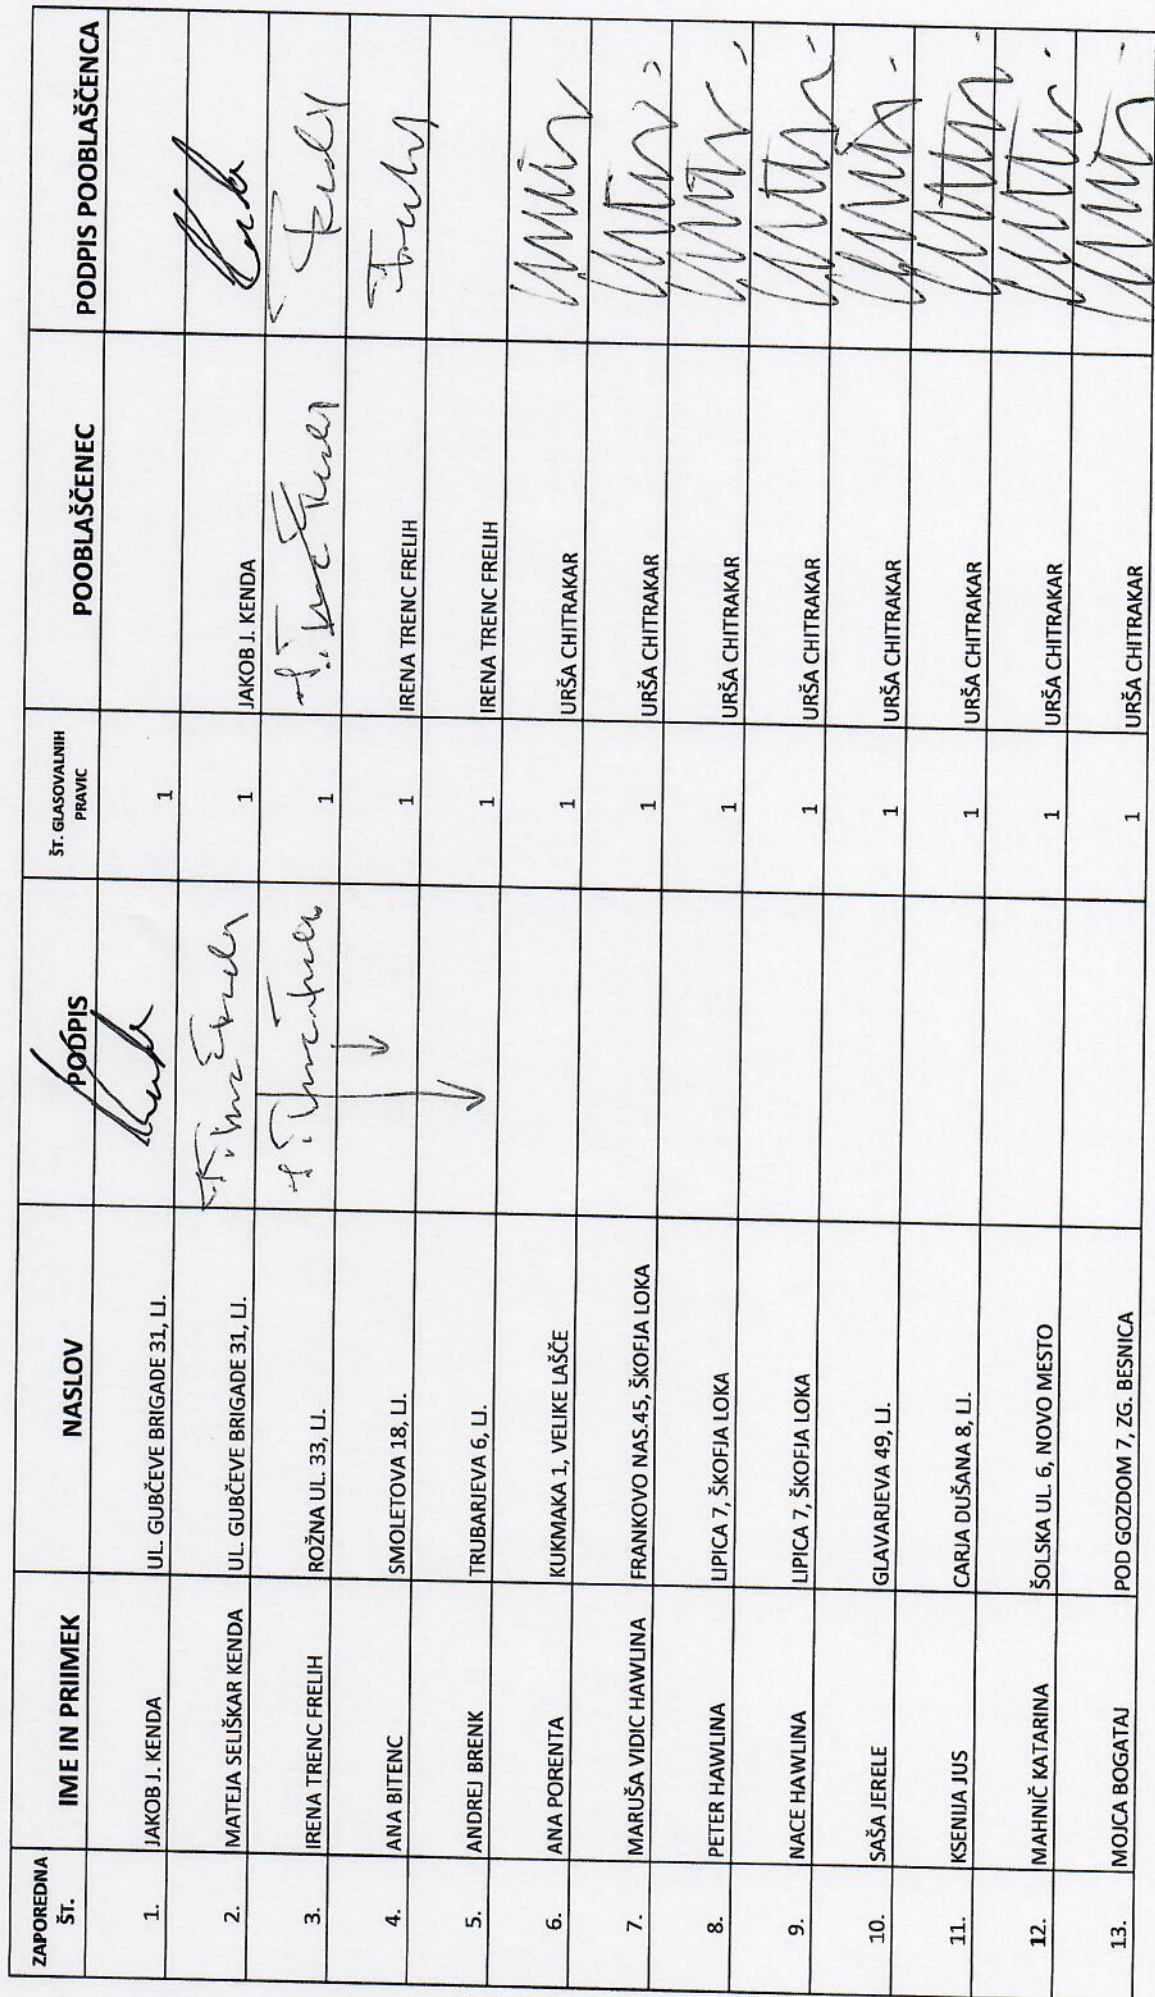 ZAPOREDNA ŠT. IME IN PRIIMEK NASLOV PODPIS ŠT. GLASOVALNIH PRAVIC POOBLAŠČENEC PODPIS POOBLAŠČENCA
1. JAKOB J. KENDA UL. GUBČEVE BRIGADE 31, LJ. 1
2. MATEJA SELIŠKAR KENDA UL. GUBČEVE BRIGADE 31, LJ. 1 JAKOB J. KENDA
3. IRENA TRENC FRELIH ROŽNA UL. 33, LJ. 1
4. ANA BITENC SMOLETOVA 18, LJ. 1 IRENA TRENC FRELIH
5. ANDREJ BRENK TRUBARJEVA 6, LJ. 1 IRENA TRENC FRELIH
6. ANA PORENTA KUKMAKA 1, VELIKE LAŠČE 1 URŠA CHITRAKAR
7. MARUŠA VIDIC HAWLINA FRANKOVO NAS.45, ŠKOFJA LOKA 1 URŠA CHITRAKAR
8. PETER HAWLINA LIPICA 7, ŠKOFJA LOKA 1 URŠA CHITRAKAR
9. NACE HAWLINA LIPICA 7, ŠKOFJA LOKA 1 URŠA CHITRAKAR
10. SAŠA JERELE GLAVARJEVA 49, LJ. 1 URŠA CHITRAKAR
11. KSENIJA JUS CARJA DUŠANA 8, LJ. 1 URŠA CHITRAKAR
12. MAHNIČ KATARINA ŠOLSKA UL. 6, NOVO MESTO 1 URŠA CHITRAKAR
13. MOJCA BOGATAJ POD GOZDOM 7, ZG. BESNICA 1 URŠA CHITRAKAR